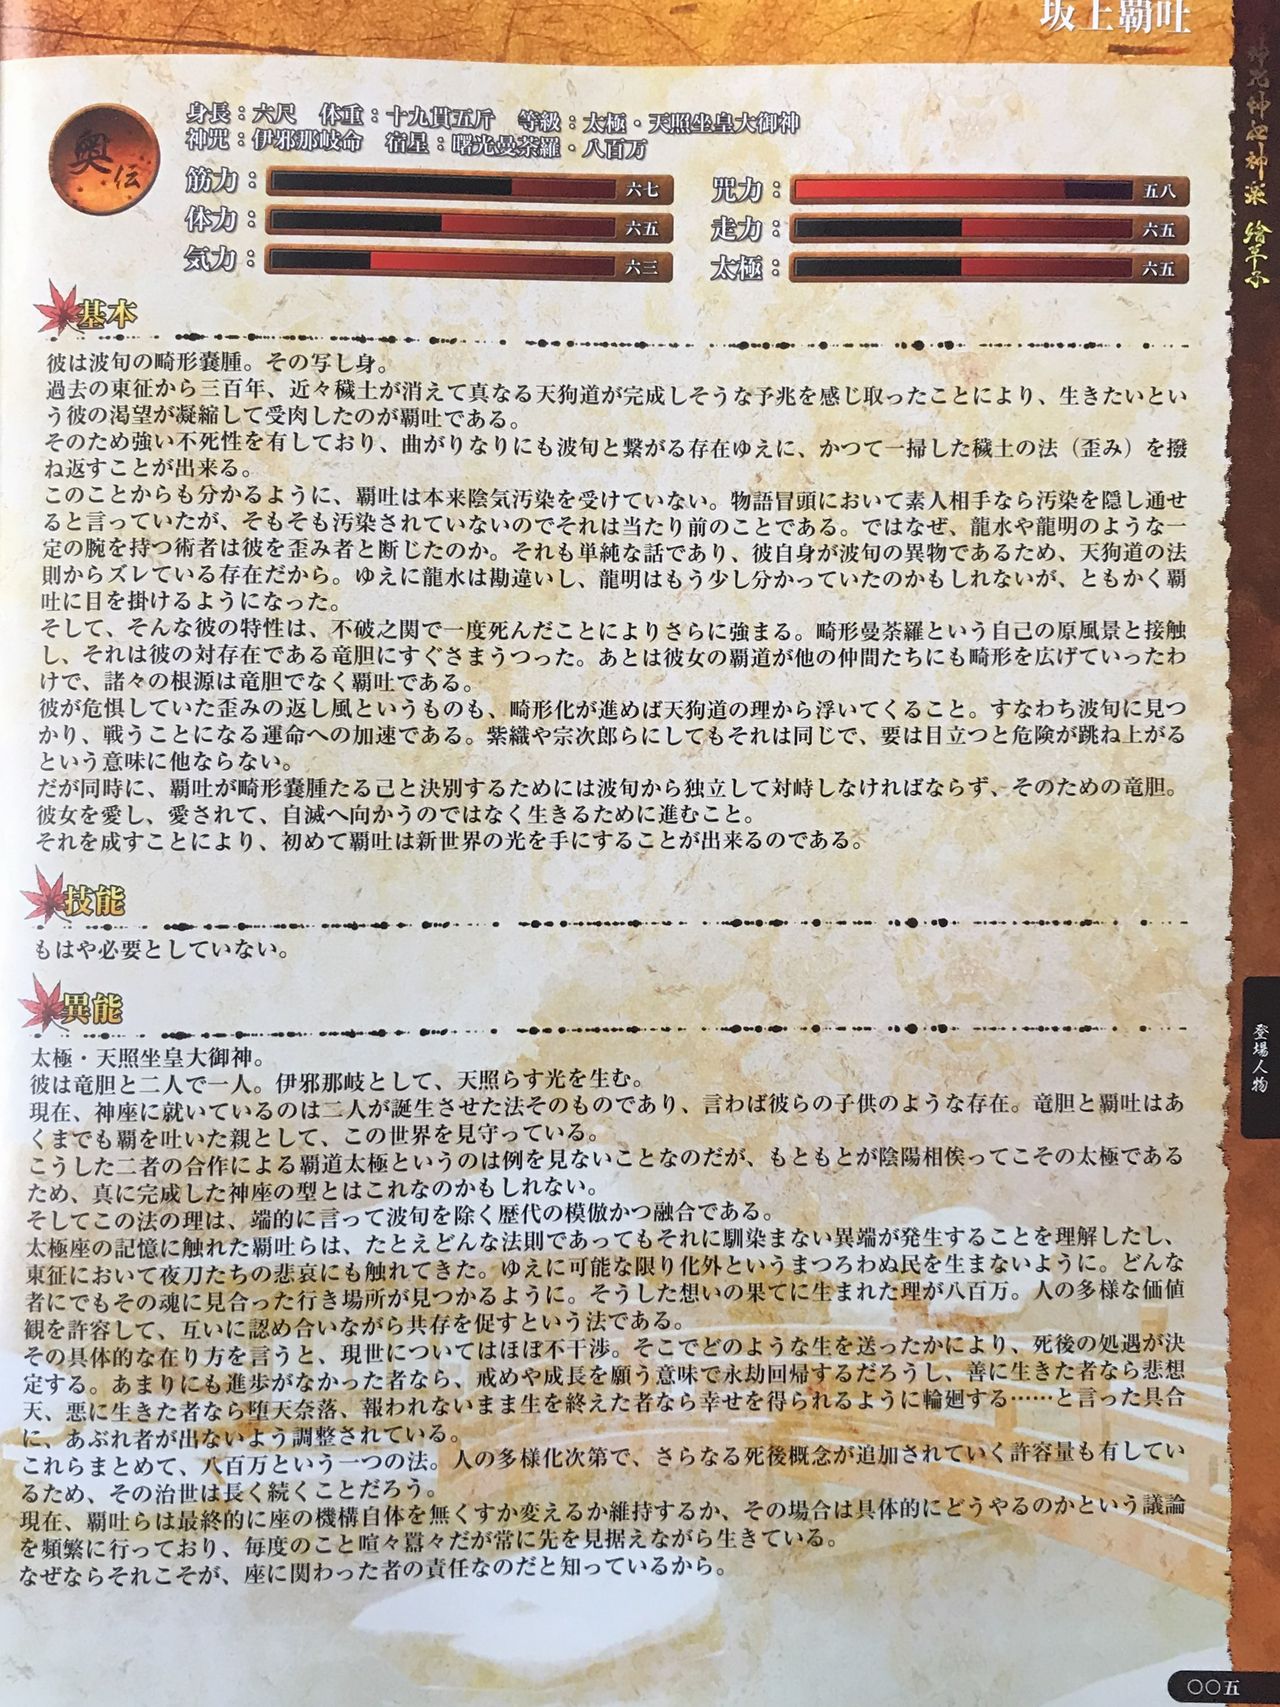 坂上覇吐
奥伝
身長：六尺　体重：十九貫五斤　等級：太極・天照坐皇大御神
神咒：伊邪那岐命　宿星：曙光曼荼羅・八百万
筋力：六七　咒力：五八
体力：六五　走力：六五
気力：六三　太極：六五
基本
彼は波旬の畸形嚢腫。その写し身。
過去の東征から三百年、近々穢土が消えて真なる天狗道が完成しそうな予兆を感じ取ったことにより、生きたいとい
う彼の渇望が凝縮して受肉したのが覇吐である。
そのため強い不死性を有しており、曲がりなりにも波旬と繋がる存在ゆえに、かつて一掃した穢土の法（歪み）を撥
ね返すことが出来る。
このことからも分かるように、覇吐は本来陰気汚染を受けていない。物語冒頭において素人相手なら汚染を隠し通せ
ると言っていたが、そもそも汚染されていないのでそれは当たり前のことである。ではなぜ、龍水や龍明のような一
定の腕を持つ術者は彼を歪み者と断じたのか。それも単純な話であり、彼自身が波旬の異物であるため、天狗道の法
則からズレている存在だから。ゆえに龍水は勘違いし、龍明はもう少し分かっていたのかもしれないが、ともかく覇
吐に目を掛けるようになった。
そして、そんな彼の特性は、不破之関で一度死んだことによりさらに強まる。畸形曼荼羅という自己の原風景と接触
し、それは彼の対存在である竜胆にすぐさまうつった。あとは彼女の覇道が他の仲間たちにも畸形を広げていったわ
けで、諸々の根源は竜胆でなく覇吐である。
彼が危惧していた歪みの返し風というものも、畸形化が進めば天狗道の理から浮いてくること。すなわち波旬に見つ
かり、戦うことになる運命への加速である。紫織や宗次郎らにしてもそれは同じで、要は目立つと危険が跳ね上がる
という意味に他ならない。
だが同時に、覇吐が畸形嚢腫たる己と決別するためには波旬から独立して対峙しなければならず、そのための竜胆。
彼女を愛し、愛されて、自滅へ向かうのではなく生きるために進むこと。
それを成すことにより、初めて覇吐は新世界の光を手にすることが出来るのである。
技能
もはや必要としていない。
異能
太極・天照坐皇大御神。
彼は竜胆と二人で一人。伊邪那岐として、天照らす光を生む。
現在、神座に就いているのは二人が誕生させた法そのものであり、言わば彼らの子供のような存在。竜胆と覇吐はあ
くまでも覇を吐いた親として、この世界を見守っている。
こうした二者の合作による覇道太極というのは例を見ないことなのだが、もともとが陰陽相俟ってこその太極である
ため、真に完成した神座の型とはこれなのかもしれない。
そしてこの法の理は、端的に言って波旬を除く歴代の模倣かつ融合である。
太極座の記憶に触れた覇吐らは、たとえどんな法則であってもそれに馴染まない異端が発生することを理解したし、
東征において夜刀たちの悲哀にも触れてきた。ゆえに可能な限り化外というまつろわぬ民を生まないように。どんな
者にでもその魂に見合った行き場所が見つかるように。そうした想いの果てに生まれた理が八百万。人の多様な価値
観を許容して、互いに認め合いながら共存を促すという法である。
その具体的な在り方を言うと、現世についてはほぼ不干渉。そこでどのような生を送ったかにより、死後の処遇が決
定する。あまりにも進歩がなかった者なら、戒めや成長を願う意味で永劫回帰するだろうし、善に生きた者なら悲想
天、悪に生きた者なら堕天奈落、報われないまま生を終えた者なら幸せを得られるように輪廻する……と言った具合
に、あぶれ者が出ないよう調整されている。
これらまとめて、八百万という一つの法。人の多様化次第で、さらなる死後概念が追加されていく許容量も有してい
るため、その治世は長く続くことだろう。
現在、覇吐らは最終的に座の機構自体を無くすか変えるか維持するか、その場合は具体的にどうやるのかという議論
を頻繁に行っており、毎度のこと喧々囂々だが常に先を見据えながら生きている。
なぜならそれこそが、座に関わった者の責任なのだと知っているから。
神咒神威神楽 繪草子
登場人物
〇〇五